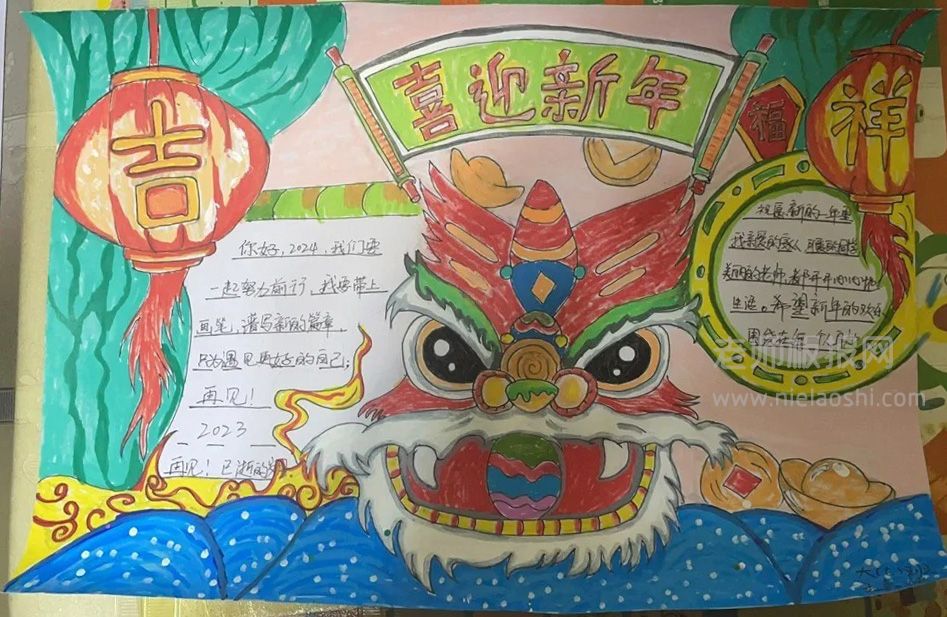 喜迎新年
吉
福
祥
你好，2024，我们要
一起努力前行，我要带上
画笔，谱写新的篇章，
只为遇见更好的自己；
再见！
2023
再见！已逝的
祝愿新的一年里
我亲爱的家人
美丽的老师，都开开心心地
生活。希望新年的欢乐
围绕在每一个
老师板报网
www.nielaoshi.com